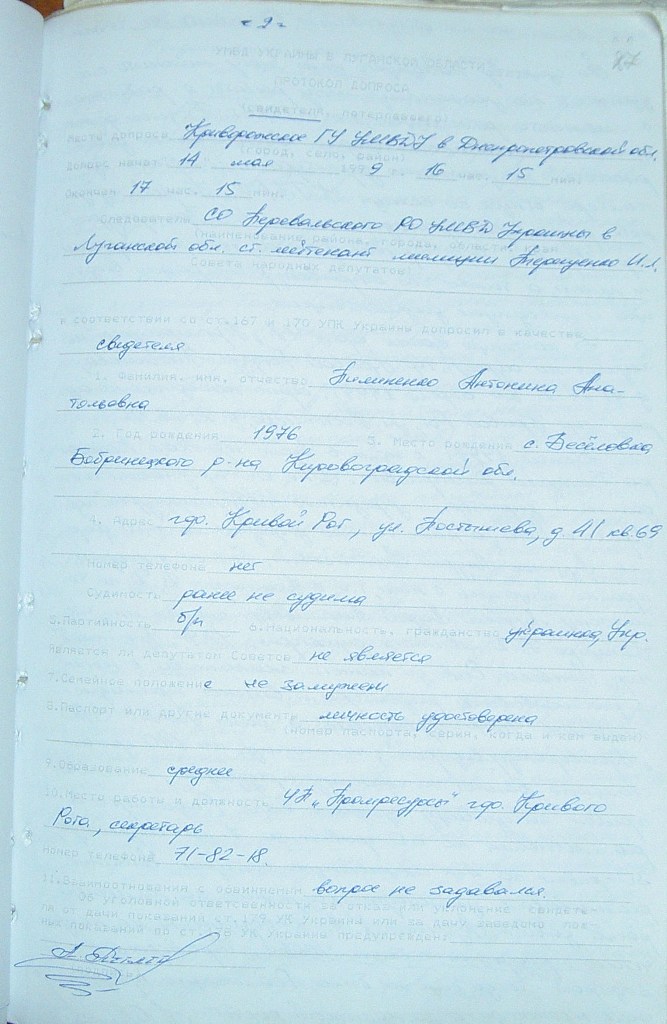 - 2 -
87
УМВД УКРАИНЫ В ЛУГАНСКОЙ ОБЛАСТИ
ПРОТОКОЛ ДОПРОСА
(свидетеля, потерпевшего)
Место допроса Криворожское ГУ УМВДУ в Днепропетровской обл.
(город, село, район)
Допрос начат 14 мая 1999 г. 16 час. 15 мин.
Окончен 17 час. 15 мин.
Следователь СО Перевальского РО УМВД Украины в
(наименование района, города, области, края
Луганской обл. ст. лейтенант милиции Терещенко И.І.
Совета народных депутатов)
в соответствии со ст.167 и 170 УПК Украины допросил в качестве
свидетеля
1. Фамилия, имя, отчество Пилипенко Антонина Ана-
тольевна
2. Год рождения 1976 3. Место рождения с. Весёловка
Бобринецкого р-на Кировоградской обл.
4. Адрес гор. Кривой Рог, ул. Постышева, д. 41 кв. 69
Номер телефона нет
Судимость ранее не судима
5.Партийность б/п 6.Национальность, гражданство украинка, Укр.
Является ли депутатом Советов не является
7.Семейное положение не замужем
8.Паспорт или другие документы личность удостоверена
(номер паспорта, серия, когда и кем выдан)
9.Образование среднее
10.Место работы и должность ЧП „Промресурсы" гор. Кривого
Рога, секретарь
Номер телефона 71-82-18.
11.Взаимоотношения с обвиняемым вопрос не задавался.
Об уголовной ответственности за отказ или уклонение свидете-
ля от дачи показаний ст.179 УК Украины или за дачу заведомо лож-
ных показаний по ст.178 УК Украины предупрежден: